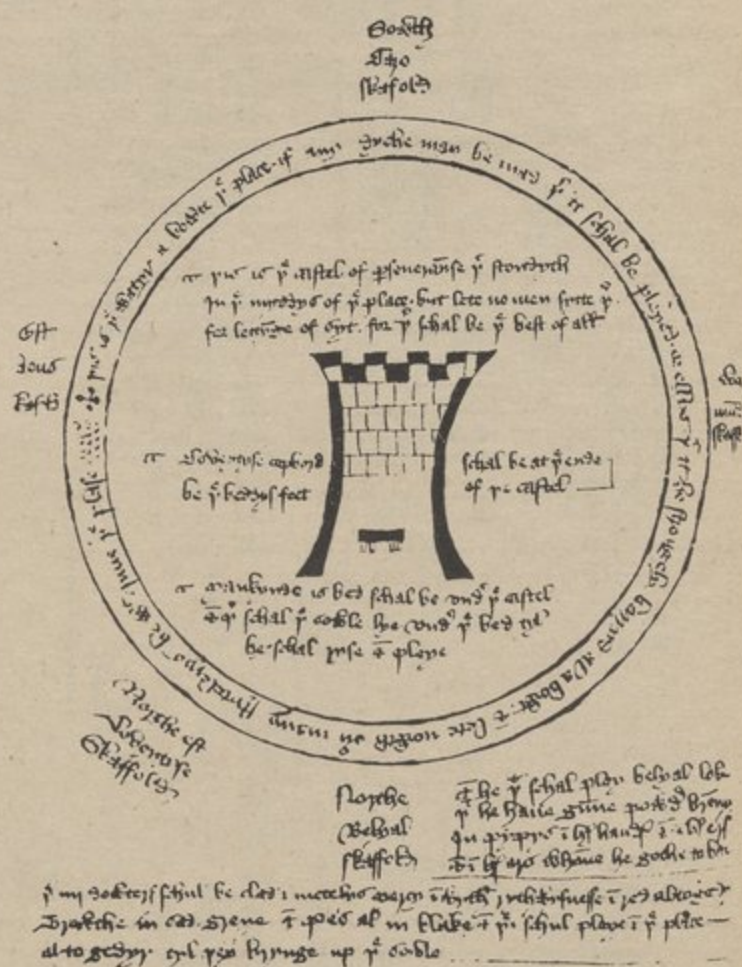 Sowth
Caro
skafold
þis is þe watyr a bowte þe place if any dyche may be mad þer it schal be pleyed or ellys þat it be stronglye barryd al a bowt & lete nowth ouyr many stytelerys be wtinne þe plase
þis is þe castel of perseueraunse þat stondyth
In þe myddys of þe place but lete no men sytte þer
for lettynge of syt for þer schal be þe best of all
Est
deus
skafold
mund
skaf
Coveytyse copbord
be þe beddys feet
schal be at þe ende
of þe castel
Mankynde is bed schal be vndyr þe castel
& þer schal þe sowle lye vndyr þe bed tyl
he schal ryse & pleye
Northe est
Coveytyse
Skaffold
Northe
Belyal
skaffold
& he þat schal pley belyal loke
þat he haue gunne powdyr brenn
In pypys in his handis & in his eris
& in his ars whanne he gothe to bat
þe iiij dowteris schul be clad in mentelys mercy in wyth rythwysnesse in red al togedyr
Trewthe in sad grene & pes al in blake & þei schul pleye in þe place
al to gedyr tyl þei brynge up þe sowle